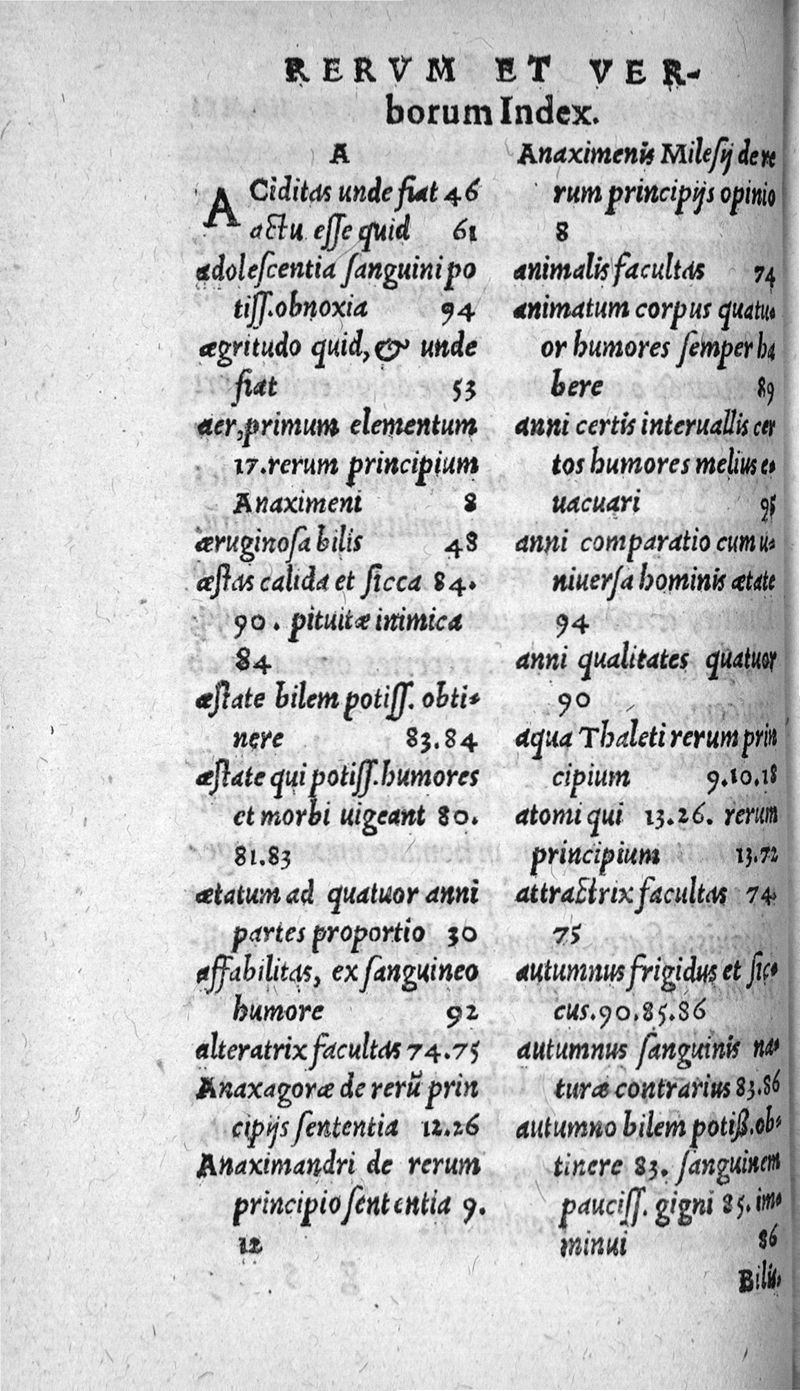 RERVM ET VER-
borum Index.
A
ACiditas unde fiat 46
actu esse quid 61
adolescentia sanguini po
tiss. obnoxia 94
ægritudo quid, & unde
fiat 53
aer, primum elementum
17. rerum principium
Anaximeni 8
æruginosa bilis 48
æstas calida et sicca 84.
90. pituitæ inimica
84
æstate bilem potiss. obti-
nere 83.84
æstate qui potiss. humores
et morbi uigeant 80.
81.83
ætatum ad quatuor anni
partes proportio 30
affabilitas, ex sanguineo
humore 92
alteratrix facultas 74.75
Anaxagoræ de rerū prin
cipijs sententia 12.26
Anaximandri de rerum
principio sententia 9.
12
Anaximenis Milesij de re
rum principijs opinio
8
animalis facultas 74
animatum corpus quatu-
or humores semper ha
bere 89
anni certis interuallis cer
tos humores melius e-
uacuari 95
anni comparatio cum u-
niuersa hominis ætate
94
anni qualitates quatuor
90
aqua Thaleti rerum prin
cipium 9.10.18
atomi qui 13.26. rerum
principium 13.72
attractrix facultas 74.
75
autumnus frigidus et sic-
cus. 90.85.86
autumnus sanguinis na-
turæ contrarius 83.86
autumno bilem potiss. ob-
tinere 83. sanguinem
pauciss. gigni 85. im-
minui 86
Bilis